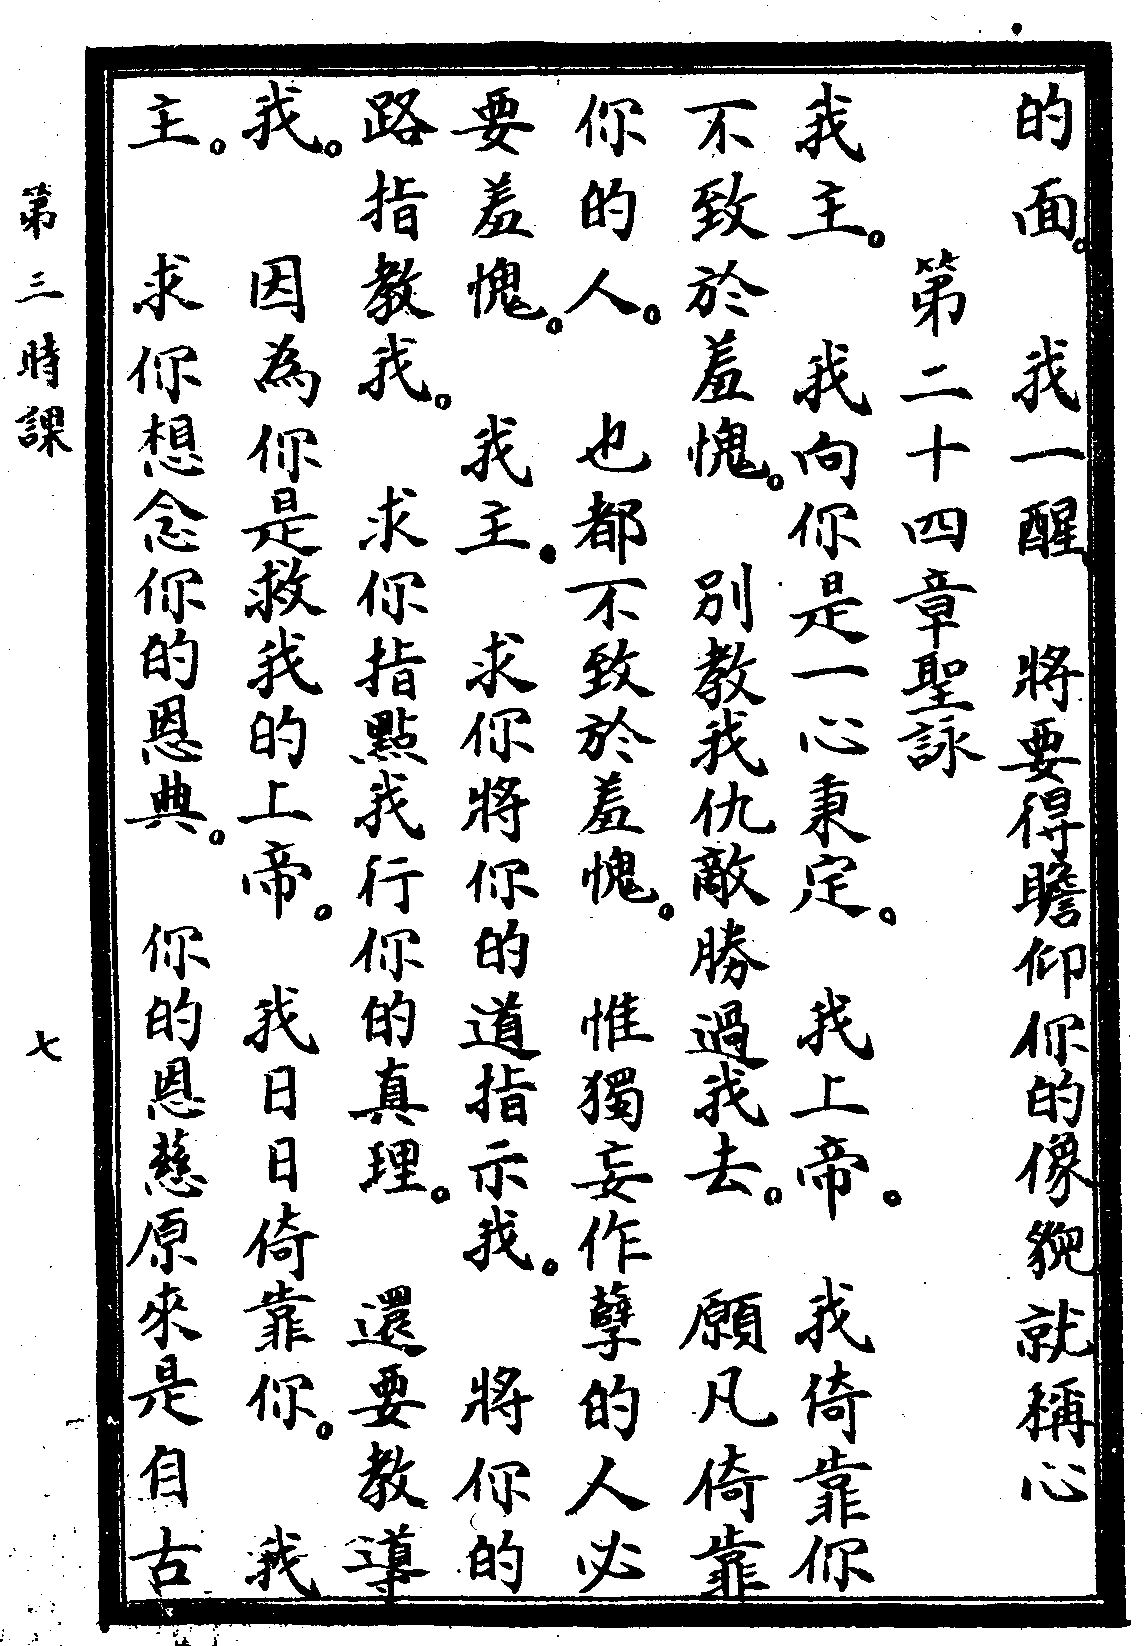 的面。我一醒將要得瞻仰你的像貌就稱心
第二十四章聖詠
我主。我向你是一心秉定。我上帝。我倚靠你
不致於羞愧。別教我仇敵勝過我去。願凡倚靠
你的人。也都不致於羞愧。惟獨妄作孽的人必
要羞愧。我主。求你將你的道指示我。將你的
路指教我。求你指點我行你的真理。還要教導
我。因為你是救我的上帝。我日日倚靠你。我
主。求你想念你的恩典。你的恩慈原來是自古
第三時課
七